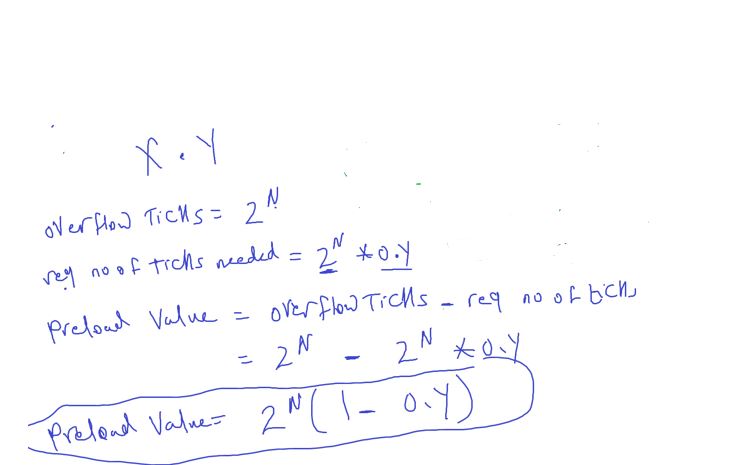 X . Y
overflow Ticks = 2^N
req no of ticks needed = 2^N * 0.Y
Preload Value = overflow Ticks - req no of ticks
= 2^N - 2^N * 0.Y
Preload Value = 2^N (1 - 0.Y)